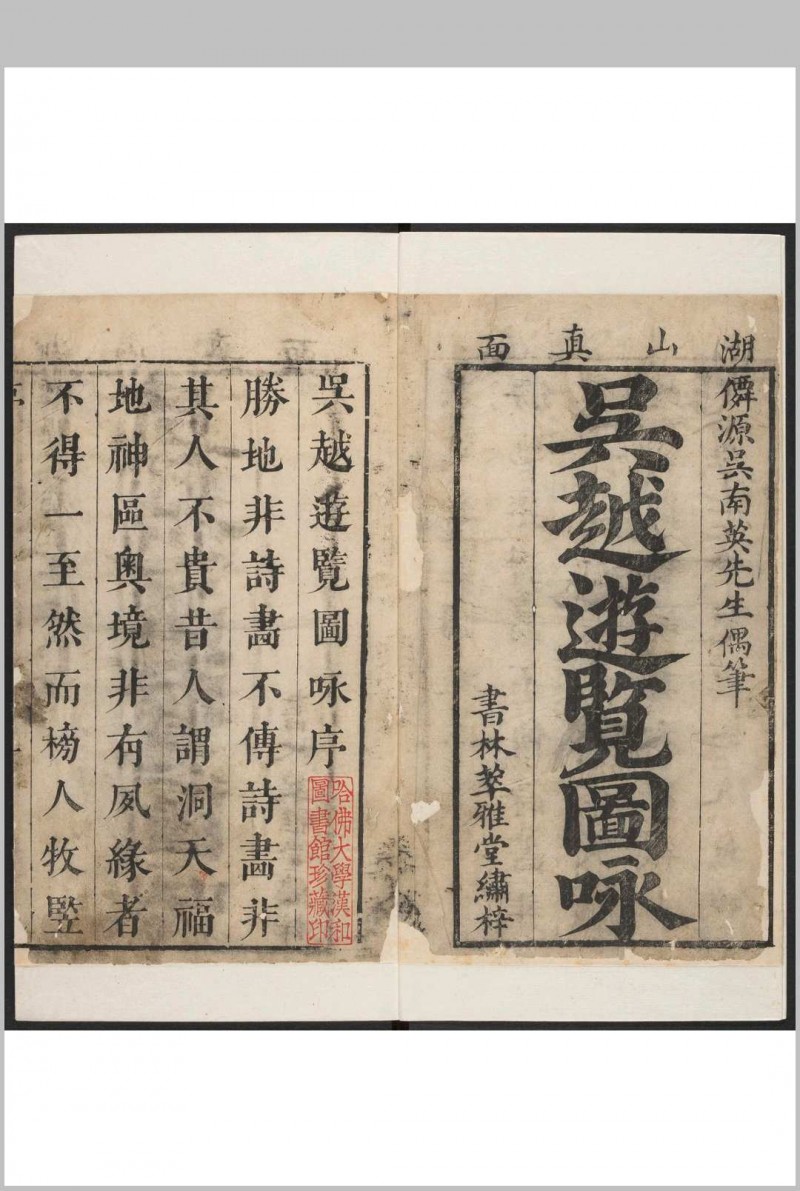 湖山真面
僊源吳南英先生偶筆
吳越遊覽圖咏
書林萃雅堂繡梓
吳越遊覽圖咏序
勝地非詩畵不傳詩畵非
其人不貴昔人謂洞天福
地神區奥境非有夙緣者
不得一至然而榜人牧竪
哈佛大學漢和
圖書館珍藏印